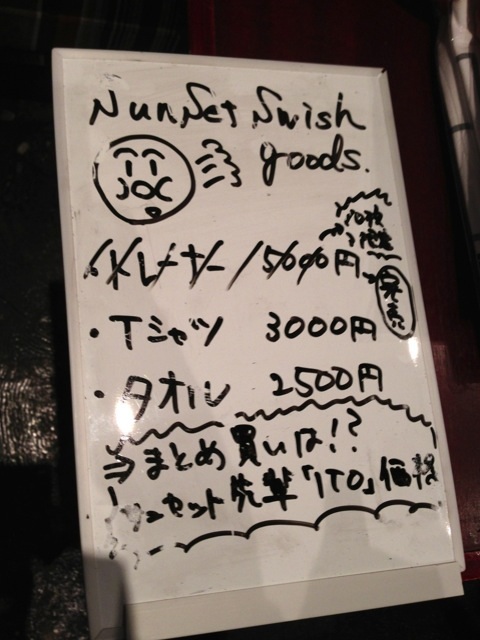 SunSet Swish
goods.
・トレーナー 15000円
・Tシャツ 3000円
・タオル 2500円
⇒まとめ買いは!?
セット 先輩「ITO」価格